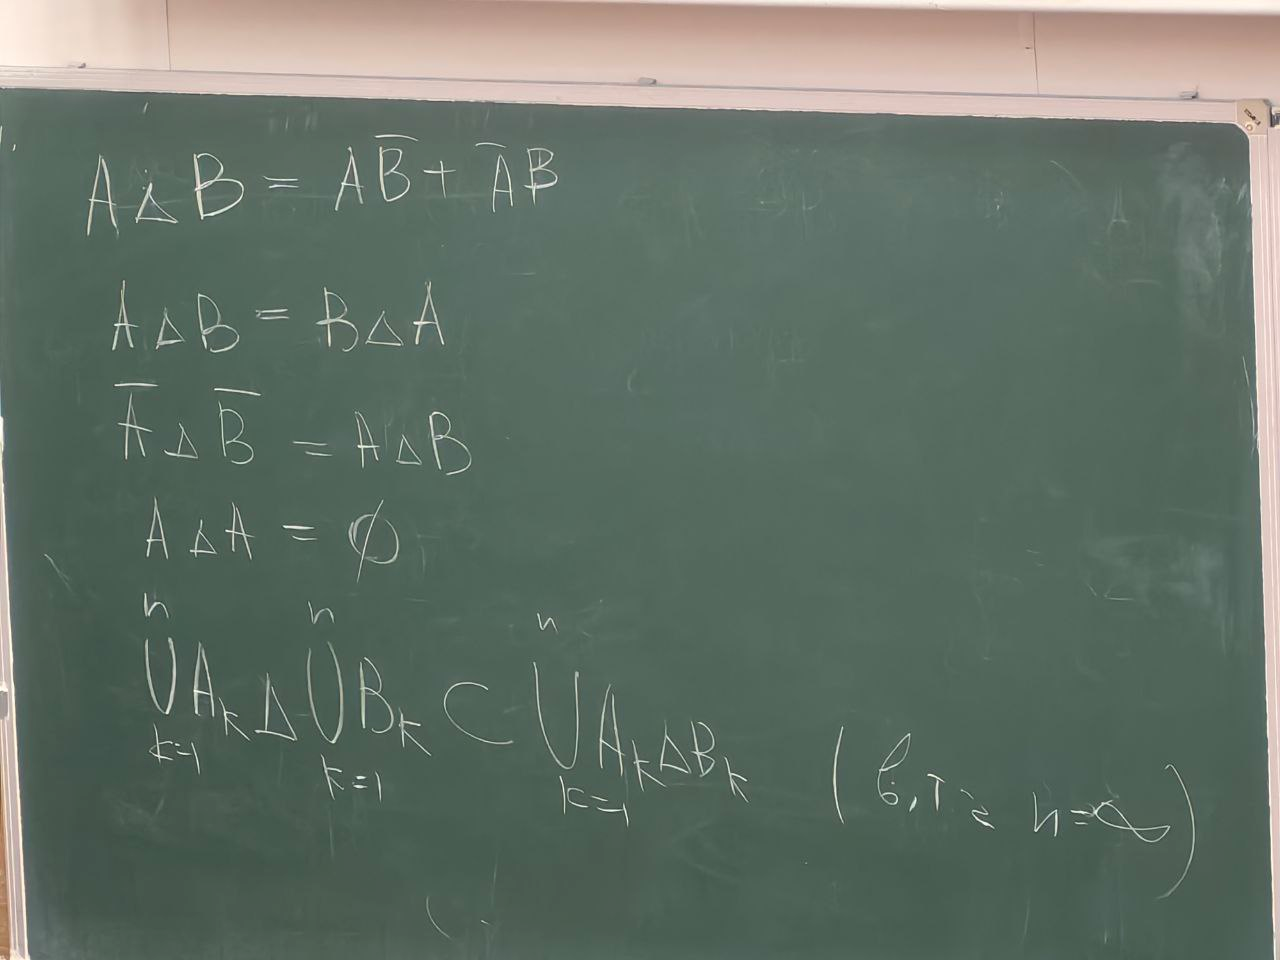 A △ B = A B̅ + A̅ B
A △ B = B △ A
A̅ △ B̅ = A △ B
A △ A = ∅
⋃ₖ₌₁ⁿ Aₖ △ ⋃ₖ₌₁ⁿ Bₖ ⊂ ⋃ₖ₌₁ⁿ Aₖ △ Bₖ (в.т.ч. n = ∞)